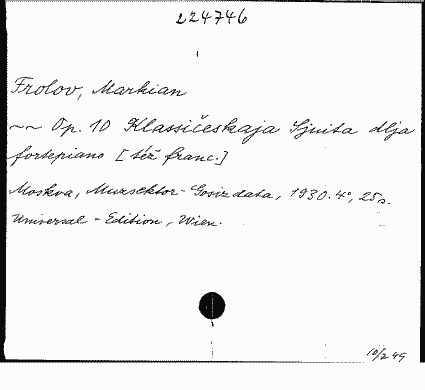 224746
Frolov, Markian
~~ Op. 10 Klassičeskaja Sjuita dlja
fortepiano [též franc.]
Moskva, Muzsektor-Gosizdata, 1930. 4°, 25 s.
Universal-Edition, Wien.
10/2 49